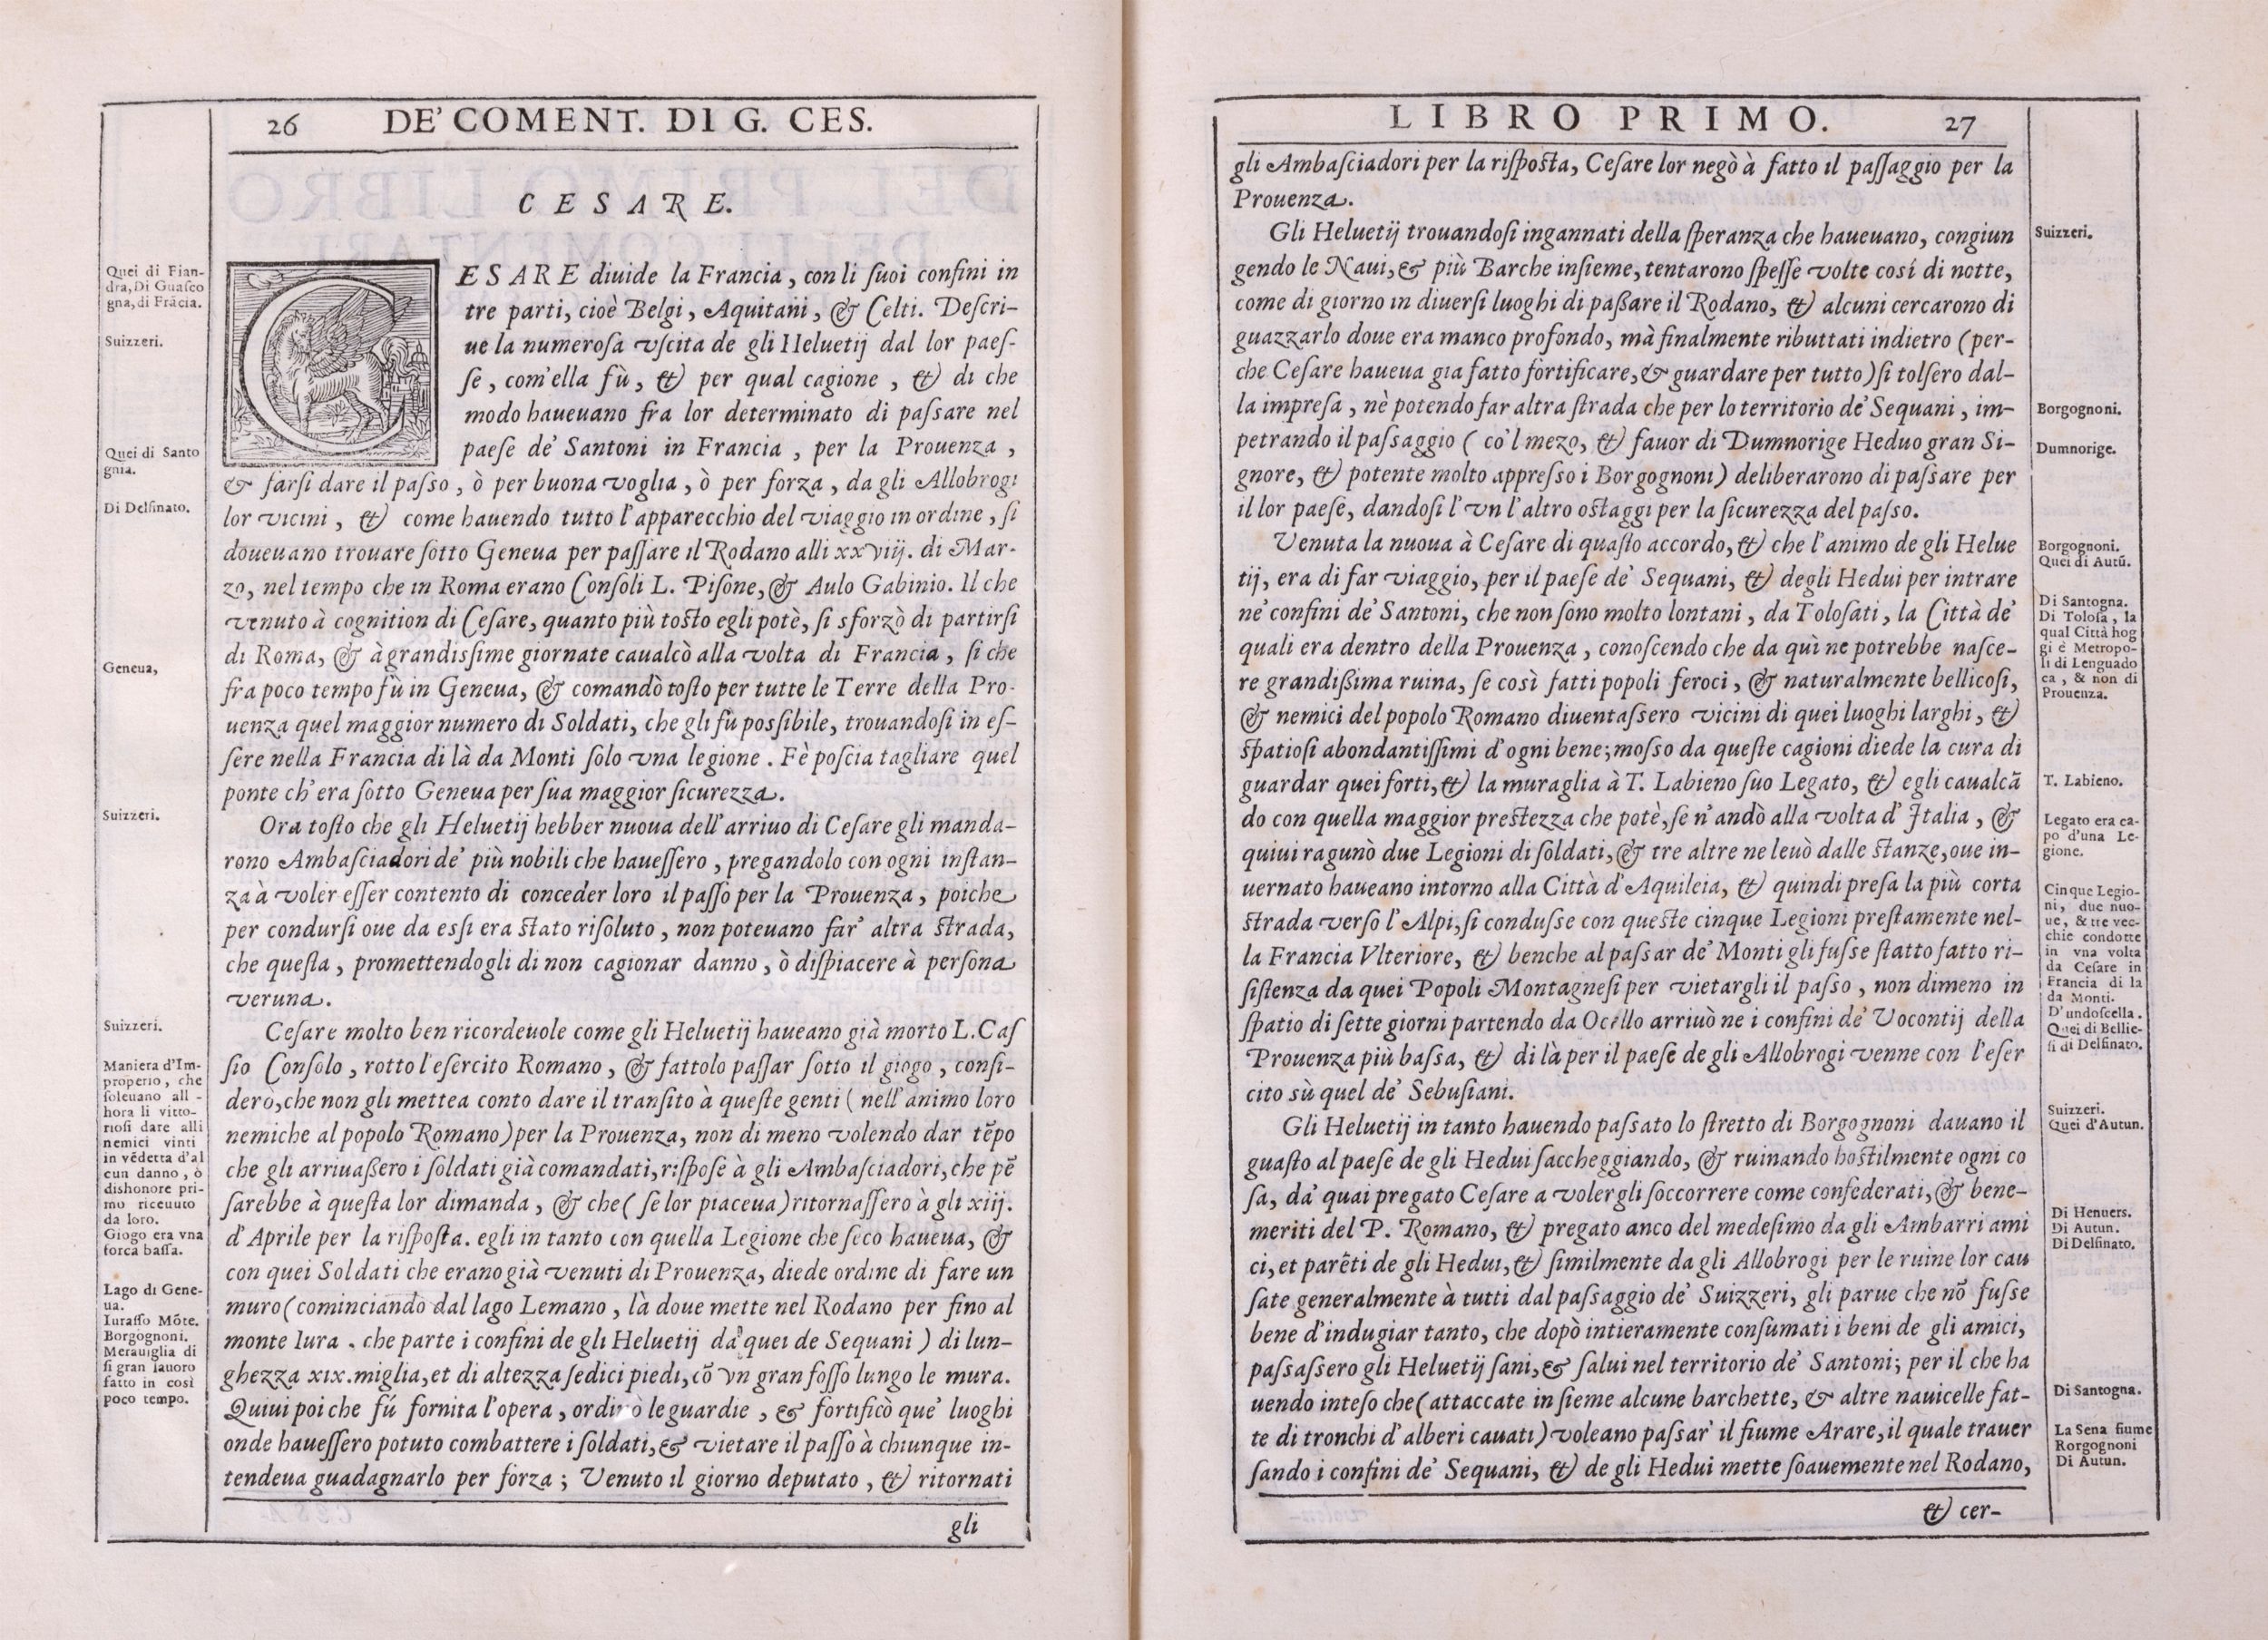 26 DE' COMENT. DI G. CES.
CESARE.
CESARE diuide la Francia, con li ſuoi confini in
tre parti, cioè Belgi, Aquitani, & Celti. Deſcri-
ue la numeroſa vſcita de gli Heluetij dal lor paeſ-
ſe, com'ella fù, & per qual cagione, & di che
modo haueuano fra lor determinato di paſsare nel
paeſe de' Santoni in Francia, per la Prouenza,
& farſi dare il paſso, ò per buona voglia, ò per forza, da gli Allobrogi
lor vicini, & come hauendo tutto l'apparecchio del viaggio in ordine, ſi
doueuano trouare ſotto Geneua per paſſare il Rodano alli xxviij. di Mar-
zo, nel tempo che in Roma erano Conſoli L. Piſone, & Aulo Gabinio. Il che
venuto à cognition di Ceſare, quanto più toſto egli potè, ſi sforzò di partirſi
di Roma, & à grandisſime giornate caualcò alla volta di Francia, ſi che
fra poco tempo fù in Geneua, & comandò toſto per tutte le Terre della Pro-
uenza quel maggior numero di Soldati, che gli fù posſibile, trouandoſi in eſ-
ſere nella Francia di là da Monti ſolo vna legione. Fè poſcia tagliare quel
ponte ch'era ſotto Geneua per ſua maggior ſicurezza.
Ora toſto che gli Heluetij hebber nuoua dell'arriuo di Ceſare gli manda-
rono Ambaſciadori de' più nobili che haueſſero, pregandolo con ogni inſtan-
za à voler eſſer contento di conceder loro il paſſo per la Prouenza, poiche
per condurſi oue da esſi era ſtato riſoluto, non poteuano far' altra ſtrada,
che queſta, promettendogli di non cagionar danno, ò diſpiacere à perſona
veruna.
Ceſare molto ben ricordeuole come gli Heluetij haueano già morto L. Caſ
ſio Conſolo, rotto l'eſercito Romano, & fattolo paſſar ſotto il giogo, conſi-
derò, che non gli mettea conto dare il tranſito à queſte genti (nell'animo loro
nemiche al popolo Romano) per la Prouenza, non di meno volendo dar tẽpo
che gli arriuaßero i ſoldati già comandati, riſpoſe à gli Ambaſciadori, che pẽ
ſarebbe à queſta lor dimanda, & che (ſe lor piaceua) ritornaſſero à gli xiij.
d'Aprile per la riſpoſta. egli in tanto con quella Legione che ſeco haueua, &
con quei Soldati che erano già venuti di Prouenza, diede ordine di fare un
muro (cominciando dal lago Lemano, là doue mette nel Rodano per fino al
monte Iura. che parte i confini de gli Heluetij da quei de Sequani) di lun-
ghezza xix. miglia, et di altezza ſedici piedi, cõ vn gran foſſo lungo le mura.
Quiui poi che fú fornita l'opera, ordinò le guardie, & fortificò que' luoghi
onde haueſſero potuto combattere i ſoldati, & vietare il paſſo à chiunque in-
tendeua guadagnarlo per forza; Venuto il giorno deputato, & ritornati
gli
Quei di Fian-
dra, Di Guaſco
gna, di Frãcia.
Suizzeri.
Quei di Santo
gnia.
Di Delfinato.
Geneua,
Suizzeri.
Suizzeri.
Maniera d'Im-
properio, che
ſoleuano all -
hora li vitto-
rioſi dare alli
nemici vinti
in vẽdetta d'al
cun danno, ò
dishonore pri-
mo riceuuto
da loro.
Giogo era vna
forca baſſa.
Lago di Gene-
ua.
Iuraſſo Mõte.
Borgognoni.
Merauiglia di
ſi gran lauoro
fatto in così
poco tempo.
LIBRO PRIMO. 27
gli Ambaſciadori per la riſpoſta, Ceſare lor negò à fatto il paſſaggio per la
Prouenza.
Gli Heluetij trouandoſi ingannati della ſperanza che haueuano, congiun
gendo le Naui, & più Barche inſieme, tentarono ſpeſſe volte cosí di notte,
come di giorno in diuerſi luoghi di paßare il Rodano, & alcuni cercarono di
guazzarlo doue era manco profondo, mà finalmente ributtati indietro (per-
che Ceſare haueua gia fatto fortificare, & guardare per tutto) ſi tolſero dal-
la impreſa, nè potendo far altra ſtrada che per lo territorio de' Sequani, im-
petrando il paſsaggio (co'l mezo, & fauor di Dumnorige Heduo gran Si-
gnore, & potente molto appreſso i Borgognoni) deliberarono di paſsare per
il lor paeſe, dandoſi l'vn l'altro oſtaggi per la ſicurezza del paſso.
Venuta la nuoua à Ceſare di quaſto accordo, & che l'animo de gli Helue
tij, era di far viaggio, per il paeſe de' Sequani, & degli Hedui per intrare
ne' confini de' Santoni, che non ſono molto lontani, da Toloſati, la Città de'
quali era dentro della Prouenza, conoſcendo che da quì ne potrebbe naſce-
re grandißima ruina, ſe così fatti popoli feroci, & naturalmente bellicoſi,
& nemici del popolo Romano diuentaſsero vicini di quei luoghi larghi, &
ſpatioſi abondantiſſimi d'ogni bene; moſso da queſte cagioni diede la cura di
guardar quei forti, & la muraglia à T. Labieno ſuo Legato, & egli caualcã
do con quella maggior preſtezza che potè, ſe n'andò alla volta d'Italia, &
quiui ragunò due Legioni di ſoldati, & tre altre ne leuò dalle ſtanze, oue in-
uernato haueano intorno alla Città d'Aquileia, & quindi preſa la più corta
ſtrada verſo l'Alpi, ſi conduſse con queſte cinque Legioni preſtamente nel-
la Francia Vlteriore, & benche al paſsar de' Monti gli fuſse ſtatto fatto ri-
ſiſtenza da quei Popoli Montagneſi per vietargli il paſso, non dimeno in
ſpatio di ſette giorni partendo da Ocello arriuò ne i confini de' Vocontij della
Prouenza più baſsa, & di là per il paeſe de gli Allobrogi venne con l'eſer
cito sù quel de' Sebuſiani.
Gli Heluetij in tanto hauendo paſsato lo ſtretto di Borgognoni dauano il
guaſto al paeſe de gli Hedui ſaccheggiando, & ruinando hoſtilmente ogni co
ſa, da' quai pregato Ceſare a volergli ſoccorrere come confederati, & bene-
meriti del P. Romano, & pregato anco del medeſimo da gli Ambarri ami
ci, et parẽti de gli Hedui, & ſimilmente da gli Allobrogi per le ruine lor cau
ſate generalmente à tutti dal paſsaggio de' Suizzeri, gli parue che nõ fuſse
bene d'indugiar tanto, che dopò intieramente conſumati i beni de gli amici,
paſsaſsero gli Heluetij ſani, & ſalui nel territorio de' Santoni; per il che ha
uendo inteſo che (attaccate inſieme alcune barchette, & altre nauicelle fat-
te di tronchi d'alberi cauati) voleano paſsar' il fiume Arare, il quale trauer
ſando i confini de' Sequani, & de gli Hedui mette ſoauemente nel Rodano,
& cer-
Suizzeri.
Borgognoni.
Dumnorige.
Borgognoni.
Quei di Autũ.
Di Santogna.
Di Toloſa, la
qual Città hog
gi è Metropo-
li di Lenguado
ca, & non di
Prouenza.
T. Labieno.
Legato era ca-
po d'una Le-
gione.
Cinque Legio-
ni, due nuo-
ue, & tre vec-
chie condotte
in vna volta
da Ceſare in
Francia di la
da Monti.
D'undoſcella.
Quei di Bellie-
ſi di Delfinato.
Suizzeri.
Quei d'Autun.
Di Henuers.
Di Autun.
Di Delfinato.
Di Santogna.
La Sena fiume
Rorgognoni
Di Autun.